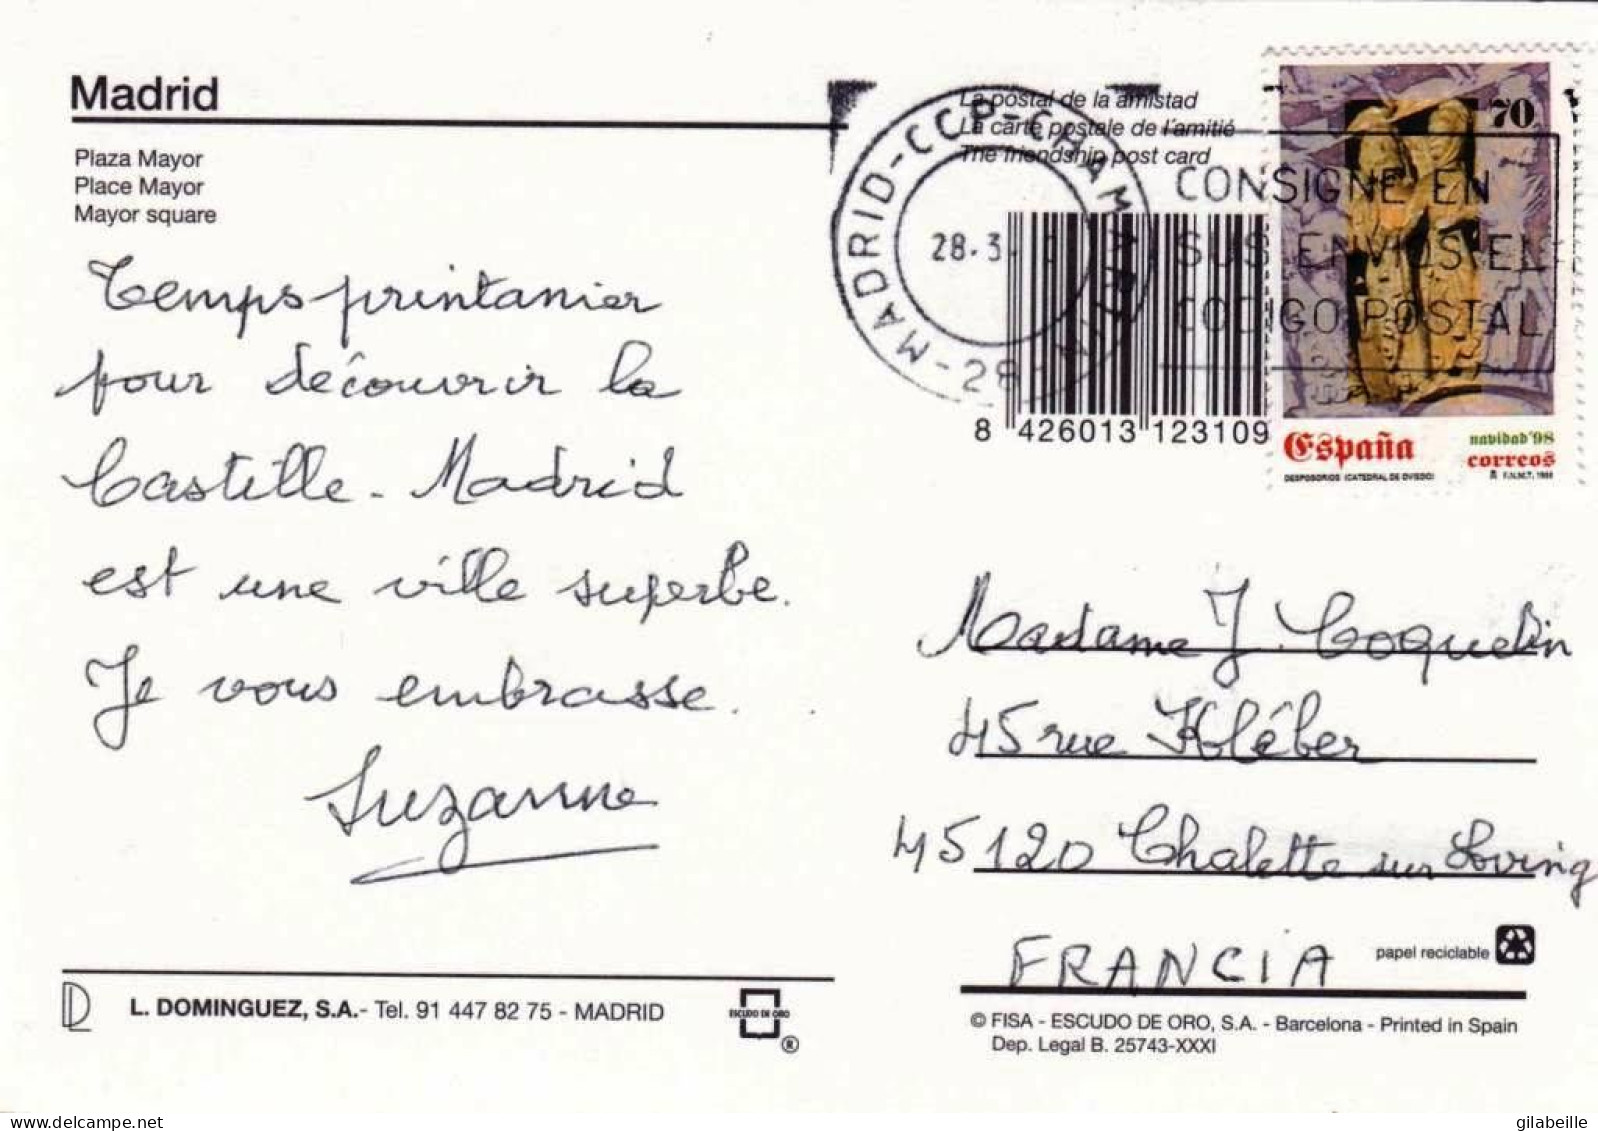 Madrid
Plaza Mayor
Place Mayor
Mayor square
Temps printanier
pour découvrir la
Castille - Madrid
est une ville superbe.
Je vous embrasse.
Suzanne
L. DOMINGUEZ, S.A.- Tel. 91 447 82 75 - MADRID
ESCUDO DE ORO
®
La postal de la amistad
La carte postale de l'amitié
The friendship post card
MADRID-CCP-CHAMARTIN
-28-
28.3
CONSIGNE EN
SUS ENVIOS EL
CODIGO POSTAL
8 426013 123109
70
España
navidad'98
correos
DESPOSORIOS (CATEDRAL DE OVIEDO)
F.N.M.T. 1998
Madame J. Coquelin
45 rue Kléber
45120 Chalette sur Loving
FRANCIA
papel reciclable
© FISA - ESCUDO DE ORO, S.A. - Barcelona - Printed in Spain
Dep. Legal B. 25743-XXXI
gilabeille